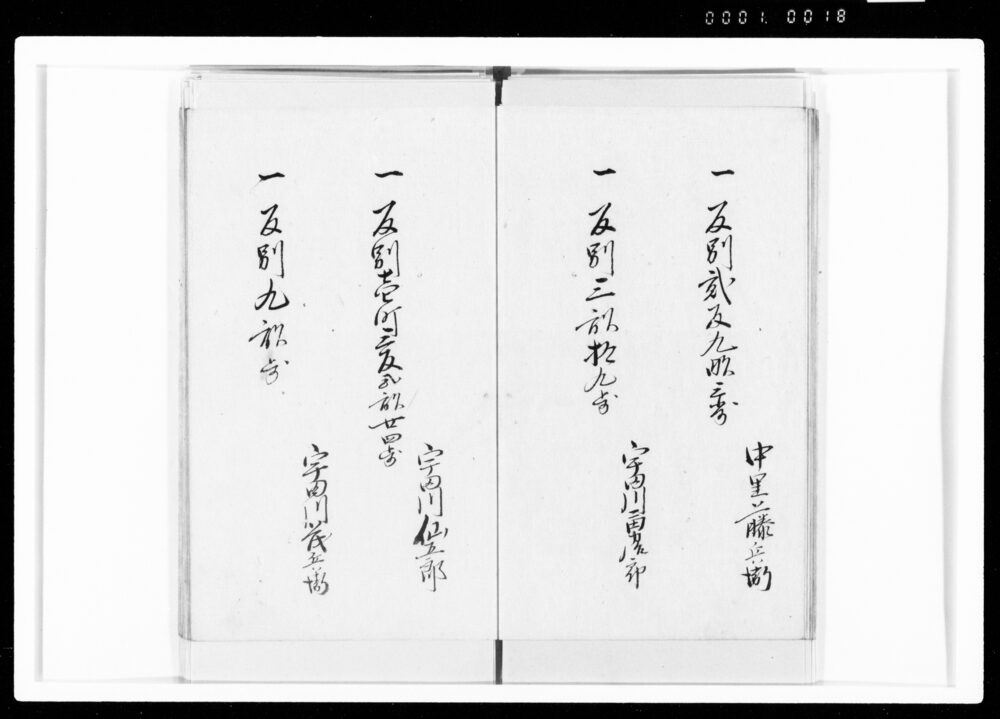 0001. 0018
一 反別弐反九畝三歩
中里藤兵衛
一 反別三畝拾九歩
宇田川
一 反別壱町三反弐畝廿四歩
宇田川仙五郎
一 反別九畝歩
宇田川茂兵衛